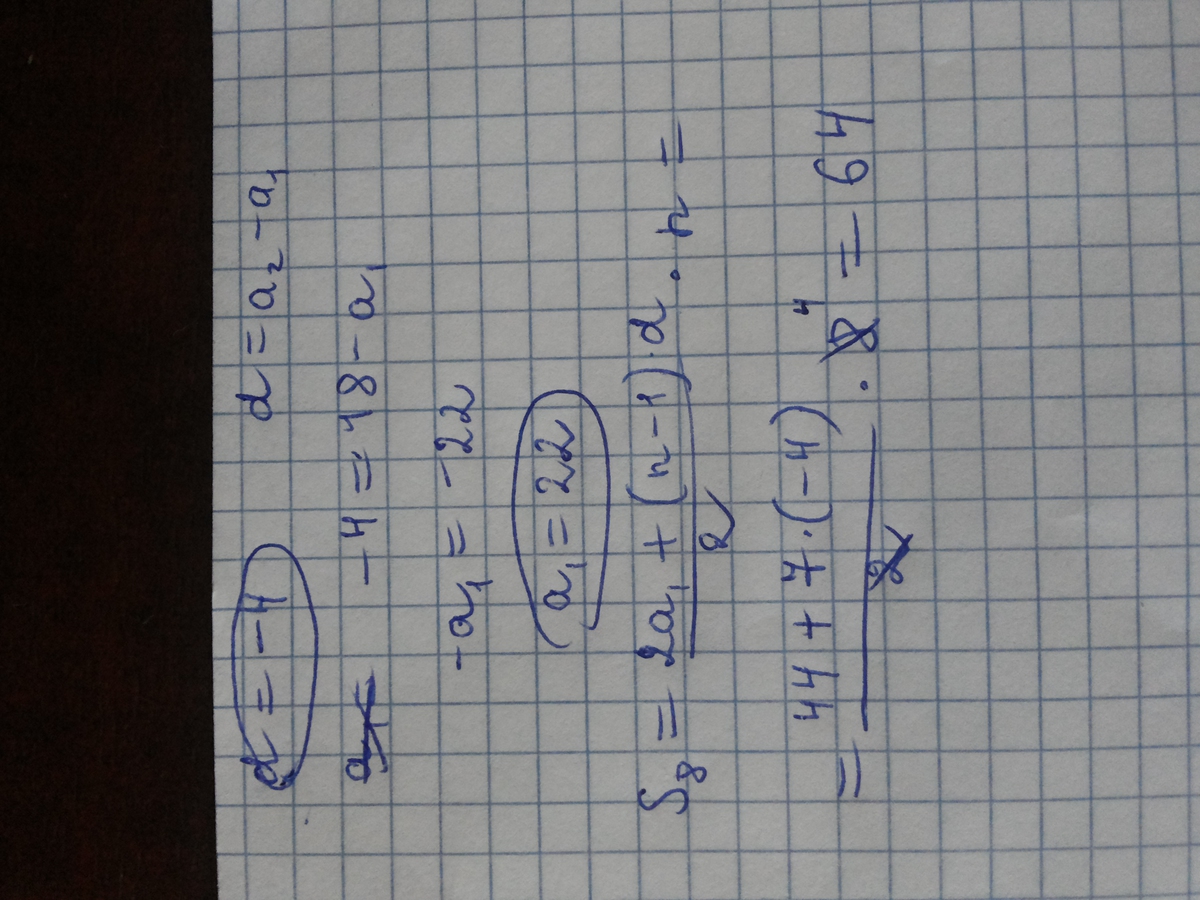 d = -4 d = a₂ - a₁
-4 = 18 - a₁
-a₁ = -22
a₁ = 22
S₈ = (2a₁ + (n-1)·d)/2 · n =
= (44 + 7·(-4))/2 · 8 4 = 64